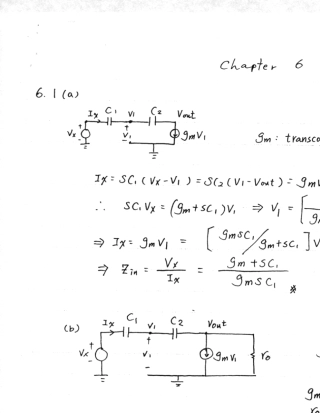 Chapter 6
6. 1 (a)
Ix C1 V1 C2 Vout
Vx + - + V1 - gmV1
gm : transco
Ix = SC1 (Vx-V1) = SC2 (V1-Vout) = gm
∴ SC1 Vx = (gm+sC1)V1 ⇒ V1 = [
⇒ Ix = gm V1 = [ gmsC1/gm+sC1 ] V
⇒ Zin = Vx/Ix = gm + sC1/gm s C1 ※
(b)
Ix C1 V1 C2 Vout
Vx + - + V1 - gm V1 ro
gm